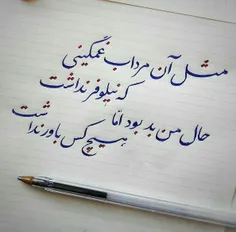 مثل آن مرداب غمگینی
که نیلوفر نداشت
حال من بد بود امّا
هیچ کس باور نداشت